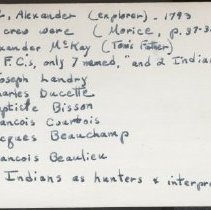 , Alexander (explorer). 1793
crew were (Morice, p. 37-3
xander McKay (Tom's Father)
F.C.s, only 7 named, "and 2 India
oseph Landry
harles Ducette
aptiste Bisson
ancois Courtois
cques Beauchamp
ancois Beaulieu
Indians as hunters & interpre